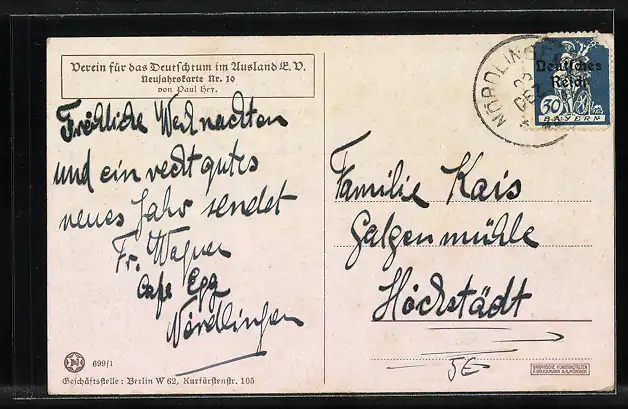 Verein für das Deutschtum im Ausland E.V.
Neujahrskarte Nr. 10
von Paul Hey.
Fröhliche Weihnachten
und ein recht gutes
neues Jahr sendet
Fr. Wagner
Cafe Egg
Nördlingen
699/1
Geschäftsstelle: Berlin W 62, Kurfürstenstr. 105
NÖRDLIN
DEZ
Deutsches
Reich
30
BAYERN
Familie Kais
Galgenmühle
Höchstädt
5E
GRAPHISCHE KUNSTANSTALTEN
F. BRUCKMANN A.G. MÜNCHEN